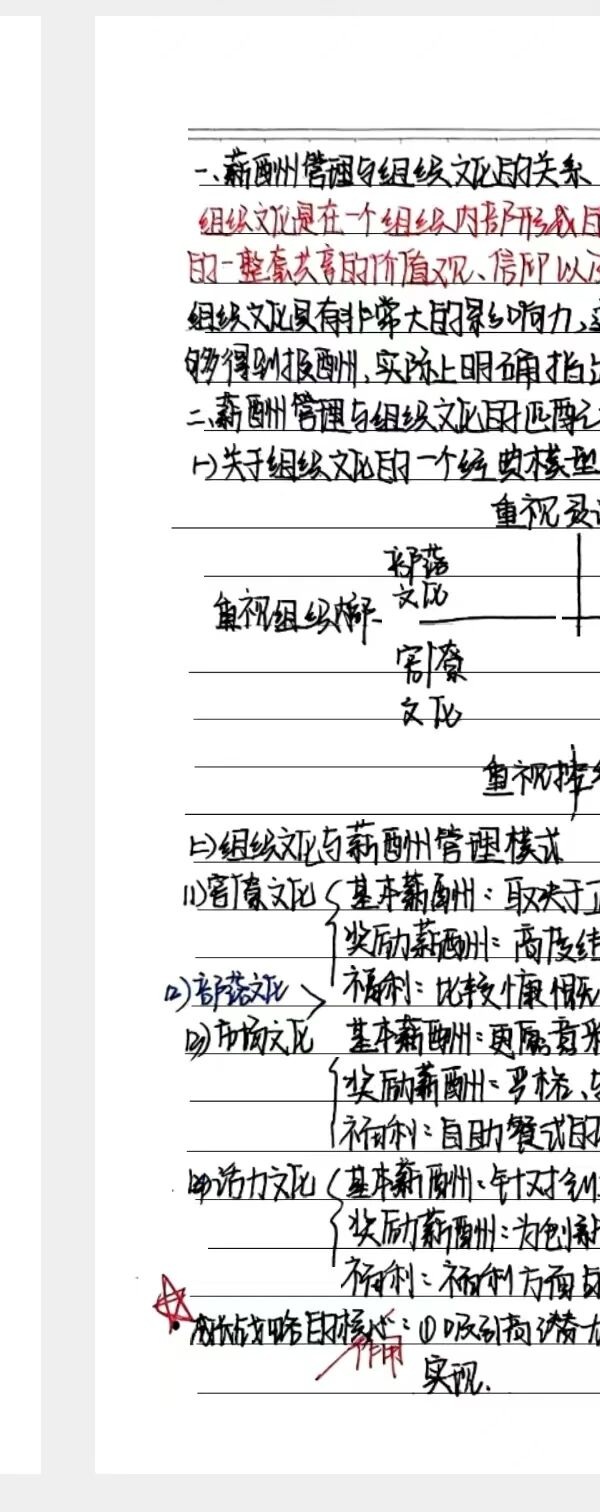 一、薪酬管理与组织文化的关系
组织文化是在一个组织内部形成
的一整套共享的价值观、信仰以
组织文化具有非常大的影响力、
够得到报酬,实际上明确指
二、薪酬管理与组织文化的匹配
(一)关于组织文化的一个经典模型
重视灵
部落
文化
重视组织内部
官僚
文化
重视
(二)组织文化与薪酬管理模式
(1)官僚文化 基本薪酬:取决于
奖励薪酬:高度
(2)部落文化 福利:比较慷慨
(3)市场文化 基本薪酬:更愿意
奖励薪酬:严格、
福利:自助餐式的
(4)活力文化 基本薪酬:针对
奖励薪酬:为创新
福利:福利方面
成长战略的核心:①吸引高潜
作用
实现.